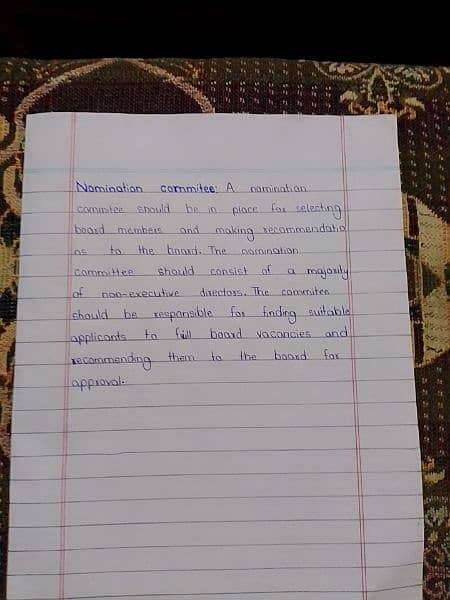 Nomination commitee: A nomination
commitee should be in place for selecting
board members and making recommendatio
ns to the board. The nomination
committee should consist of a majority
of non-executive directors. The commitee
should be responsible for finding suitable
applicants to fill board vacancies and
recommending them to the board for
approval.